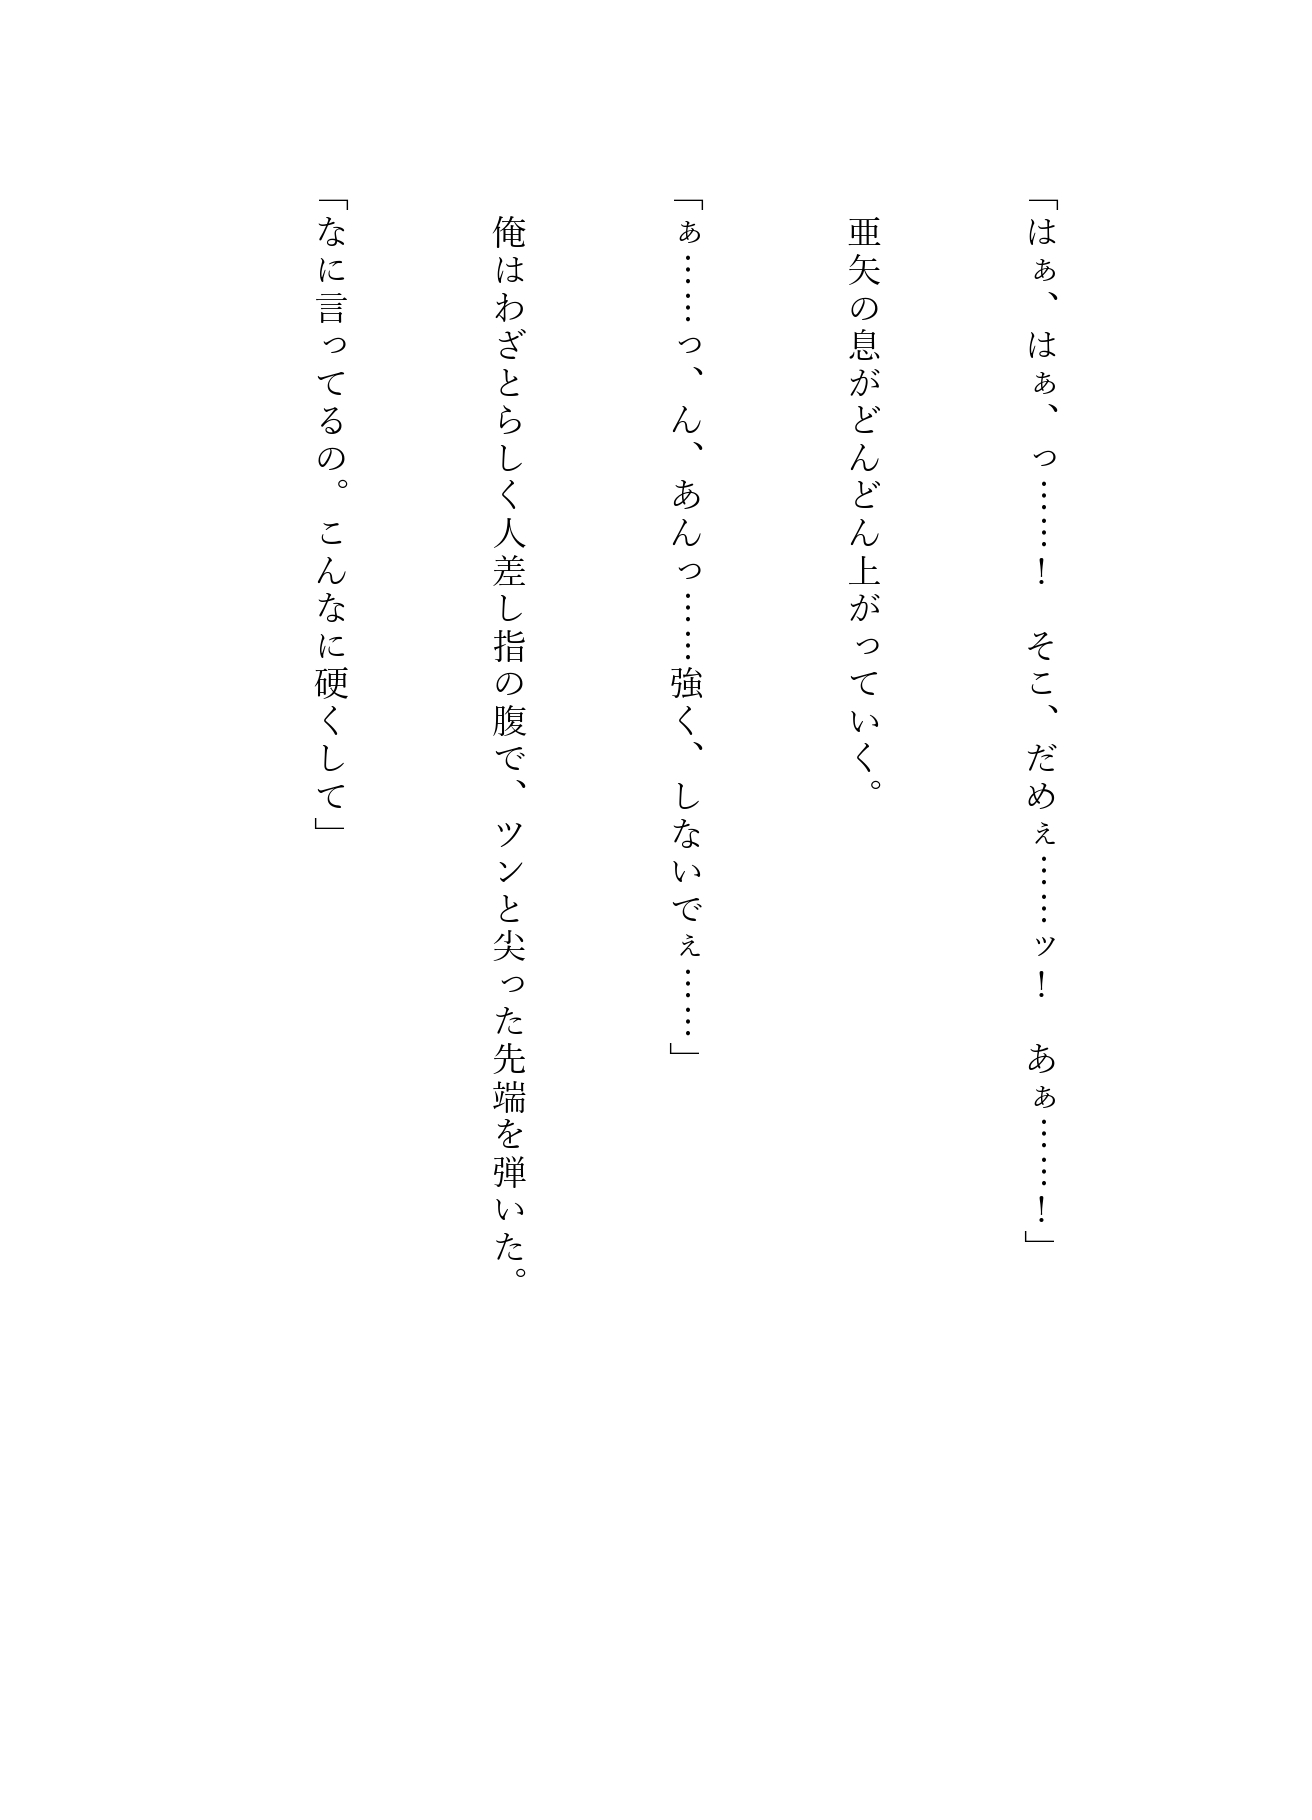 「はぁ、はぁ、っ……！　そこ、だめぇ……ッ！　あぁ……！」
亜矢の息がどんどん上がっていく。
「ぁ……っ、ん、あんっ……強く、しないでぇ……」
俺はわざとらしく人差し指の腹で、ツンと尖った先端を弾いた。
「なに言ってるの。こんなに硬くして」